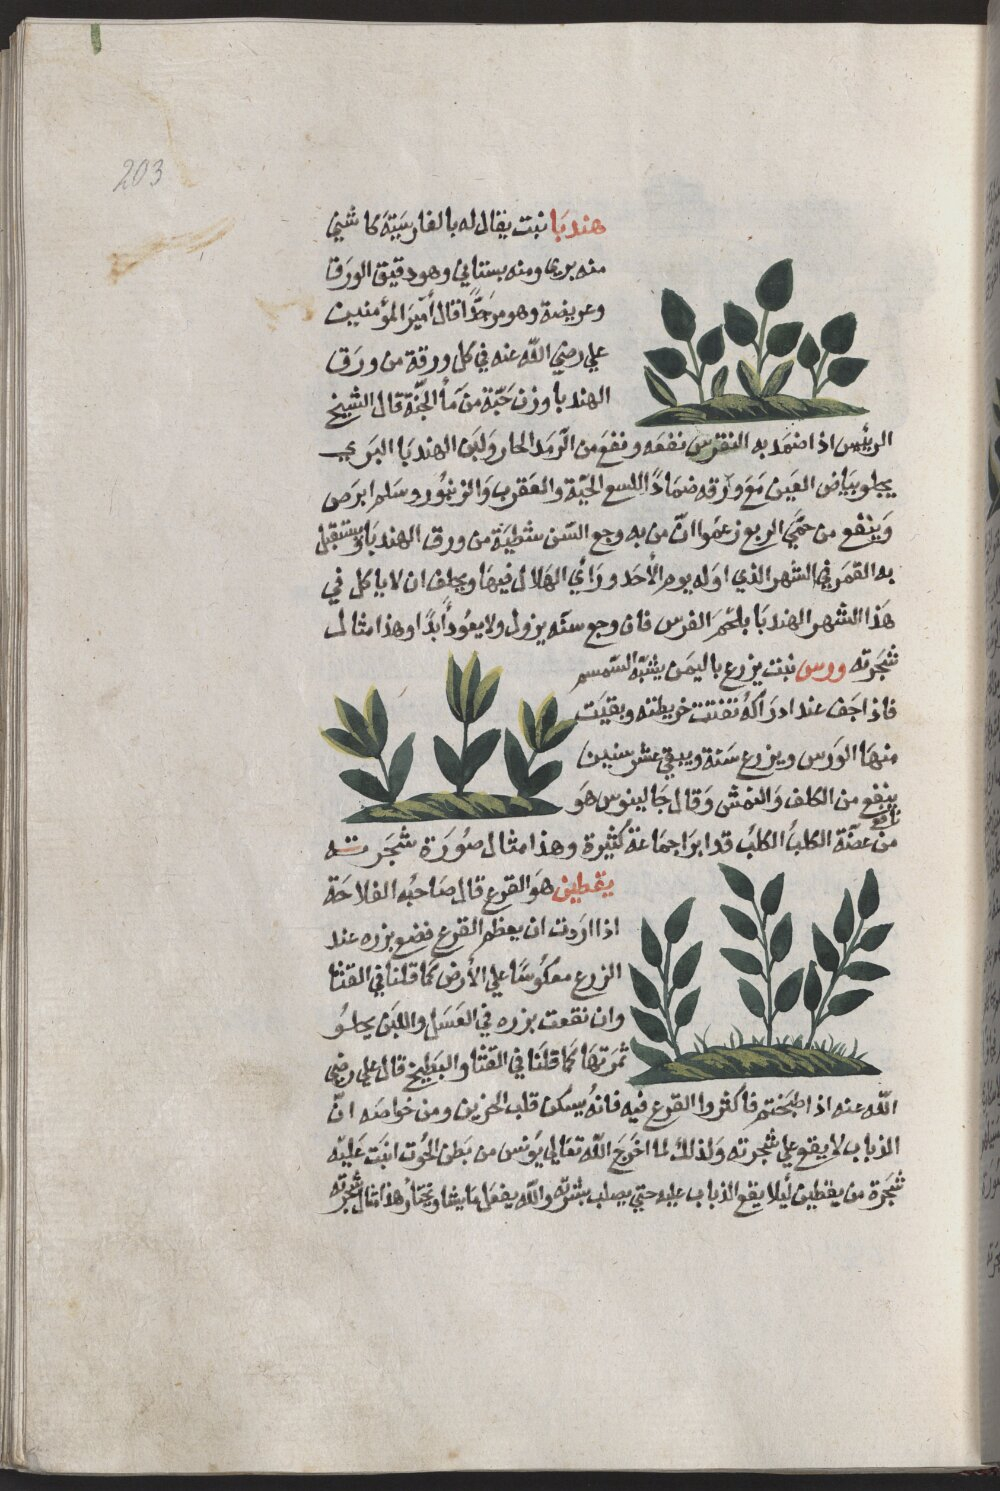 203
هندبا نبت يقال له بالفارسيَّة كاشني
منه برى ومنه بستاني وهو دقيق الورَق
وعريضة وهو مر جدًّا قال أمير المؤمنين
علي رضي الله عنه في كل ورقة من ورَق
الهندبا وزن حَبّة من مآ الجنّة قال الشيخ
الرئيس اذا ضمد به النقرس نفعه ونفع من الرّمَد الحار ولبَن الهندبَا البَري
يجلو بيَاض العَين مَع ورقه ضمَادًا للسع الحيّة والعَقرب وَالزنبُور وسَلم ابرَص
وَينفع من حمَّي الربع زعمَوا انّ من به وجع السّن شظيَة من ورق الهندبَا ويستقبل
به القمَر في الشهر الذي اوله يوم الأحَد ورَأي الهَلال فيهَا ويحلف ان لا ياكل في
هَذا الشهر الهندبَا بلحَم الفرس فان وجع سنّه يزول ولا يعُود أبدًا وهذا مثال
شجَرته ورس نبت يزرع باليمَن يشبَه السّمسم
فاذا جَف عند ادرَاكه تفتتت خريطته وبقيَت
منهَا الوَرس ويزرع سَنة ويبقي عشر سنين
ينفع من الكلف وَالنمش وَقال جَالينوس هَو نافع
من عضّة الكلبُ الكلبُ قد ابرَا جمَاعة كثيرة وهذا مثال صُورَة شجَرته
يقطين هوَ القرع قال صَاحبُ الفلاحَة
اذا اردت ان يعظم القرع فضع بزره عند
الزرع معكُوسًا علي الأرض كمَا قلنا في القثا
وان نقعت بزره في العَسَل واللبَن يحلوُ
ثمَرتهَا كمَا قلنَا في القثا والبَطيخ قال علي رضي
الله عنه اذا طبختم فاكثروا القرع فيه فانهُ يسكن قلب الحزين ومن خواصّه انّ
الذباب لا يقع علي شجرته وَلذلك لما اخرَج الله تعَالي يُونس من بَطن الحُوت انبَت عَليْه
شجَرة من يقطين لَيلا يقع الذباب عليه حتي يصلب بشرته والله يفعَل مَا يشا ويختَار هذا مثال شجرته